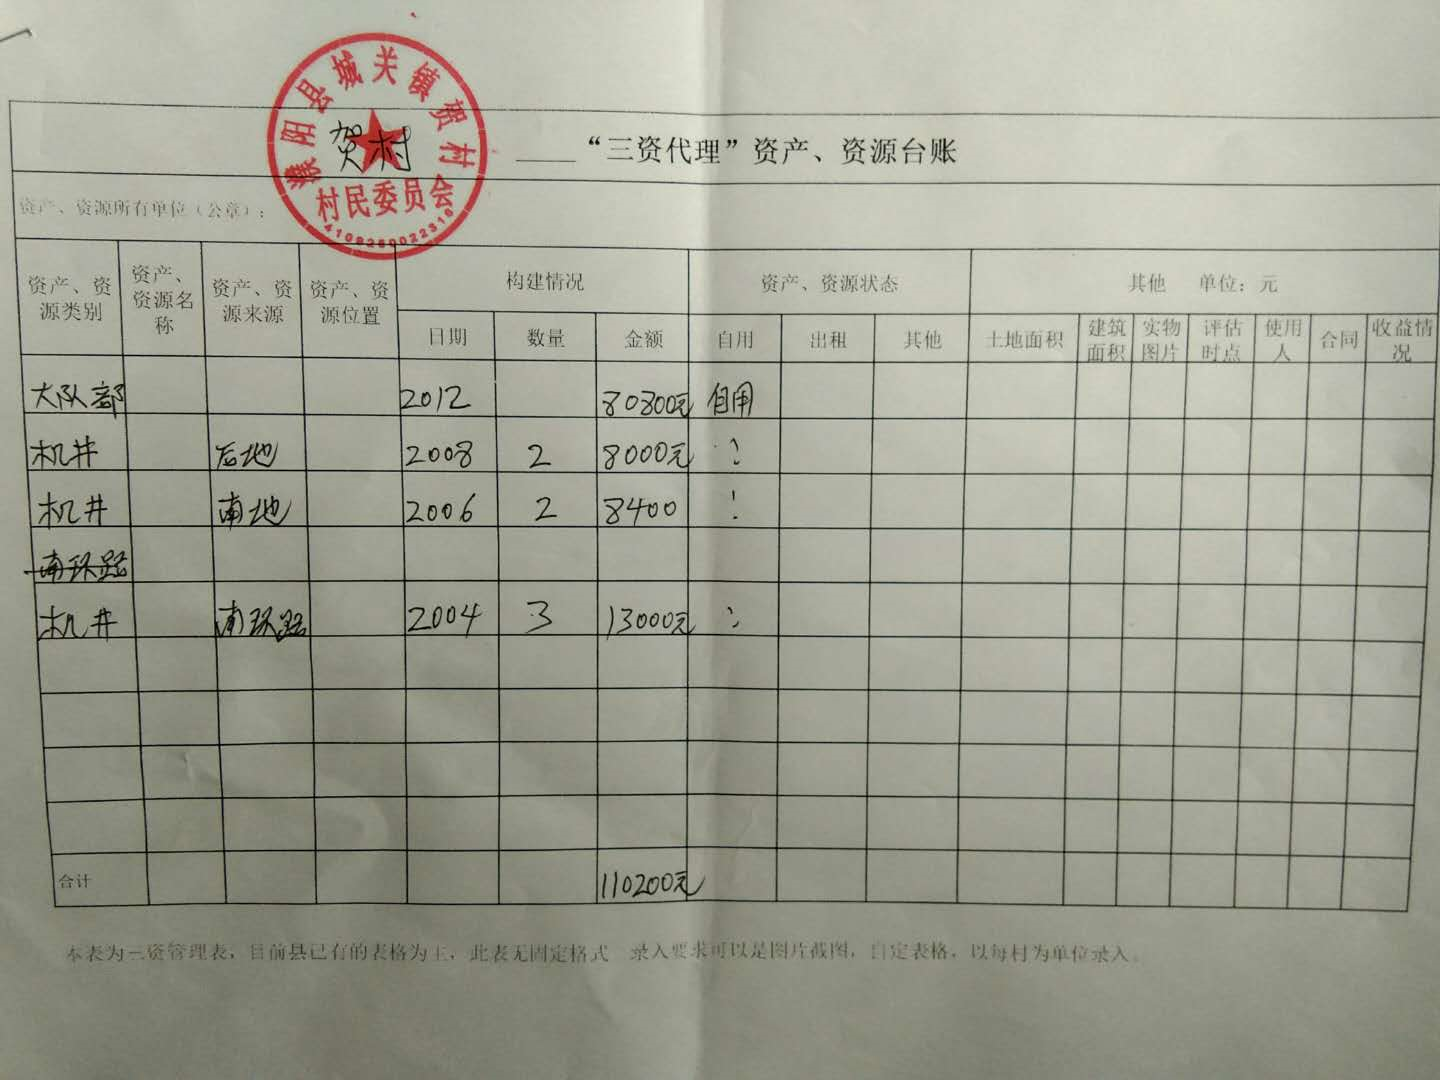 濮阳县城关镇贺村
村民委员会
贺村 “三资代理”资产、资源台账
资产、资源所有单位（公章）：
资产、资源类别 资产、资源名称 资产、资源来源 资产、资源位置 构建情况 资产、资源状态 其他 单位：元
日期 数量 金额 自用 出租 其他 土地面积 建筑面积 实物图片 评估时点 使用人 合同 收益情况
大队部 2012 80800元 自用
机井 后地 2008 2 8000元
机井 南地 2006 2 8400
南环路
机井 南环路 2004 3 13000元
合计 110200元
本表为三资管理表，目前县已有的表格为主，此表无固定格式 录入要求可以是图片截图，自定表格，以每村为单位录入。